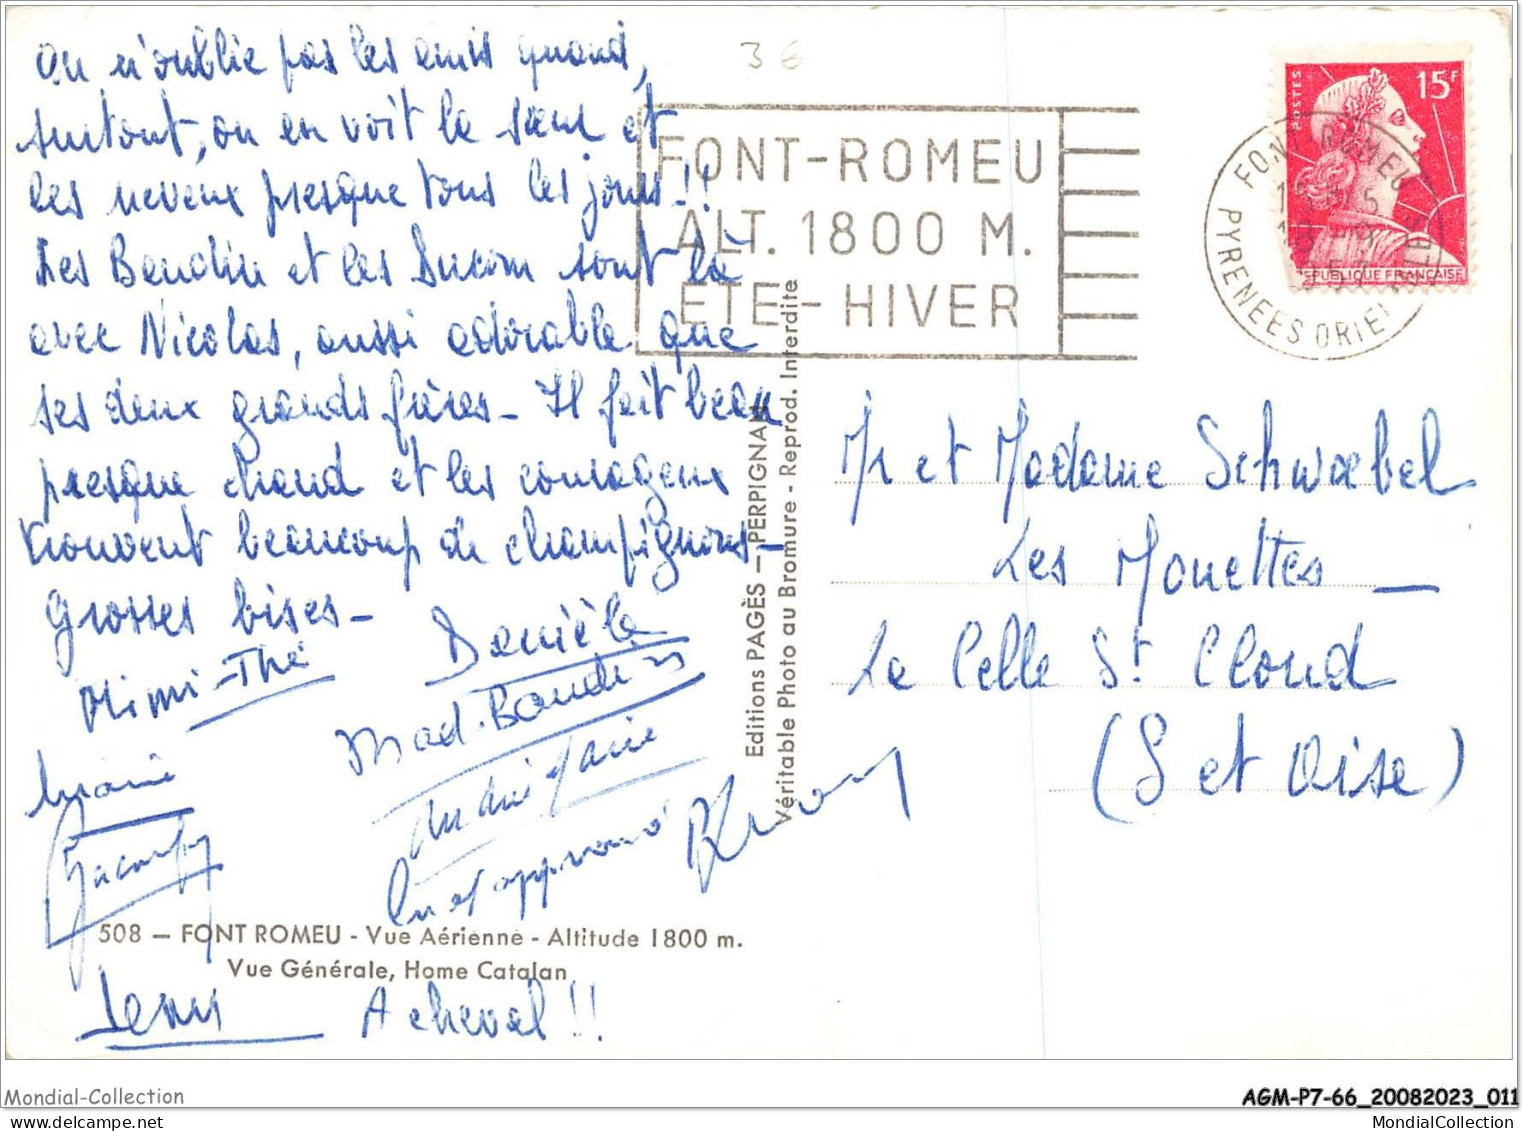 36
On n'oublie pas les amis quand,
surtout, on en voit la sœur et
les neveux presque tous les jours !!
Les Baudin et les Ducom sont là
avec Nicolas, aussi adorable que
ses deux grands frères - Il fait beau
presque chaud et les courageux
trouvent beaucoup de champignons -
Grosses bises -
Danièle
Mimi-Thé
Mad. Baudin
Marie
André
lu et approuvé
Jean
A cheval !!
508 — FONT ROMEU - Vue Aérienne - Altitude 1800 m.
Vue Générale, Home Catalan
Editions PAGÈS — PERPIGNAN
Véritable Photo au Bromure - Reprod. Interdite
FONT-ROMEU
ALT. 1800 M.
ETE - HIVER
POSTES
15F
REPUBLIQUE FRANÇAISE
FONT ROMEU
PYRENEES ORIENTALES
Mr et Madame Schwaebel
Les Mouettes —
La Celle St Cloud
(S et Oise)
Mondial-Collection
AGM-P7-66_20082023_011
MondialCollection